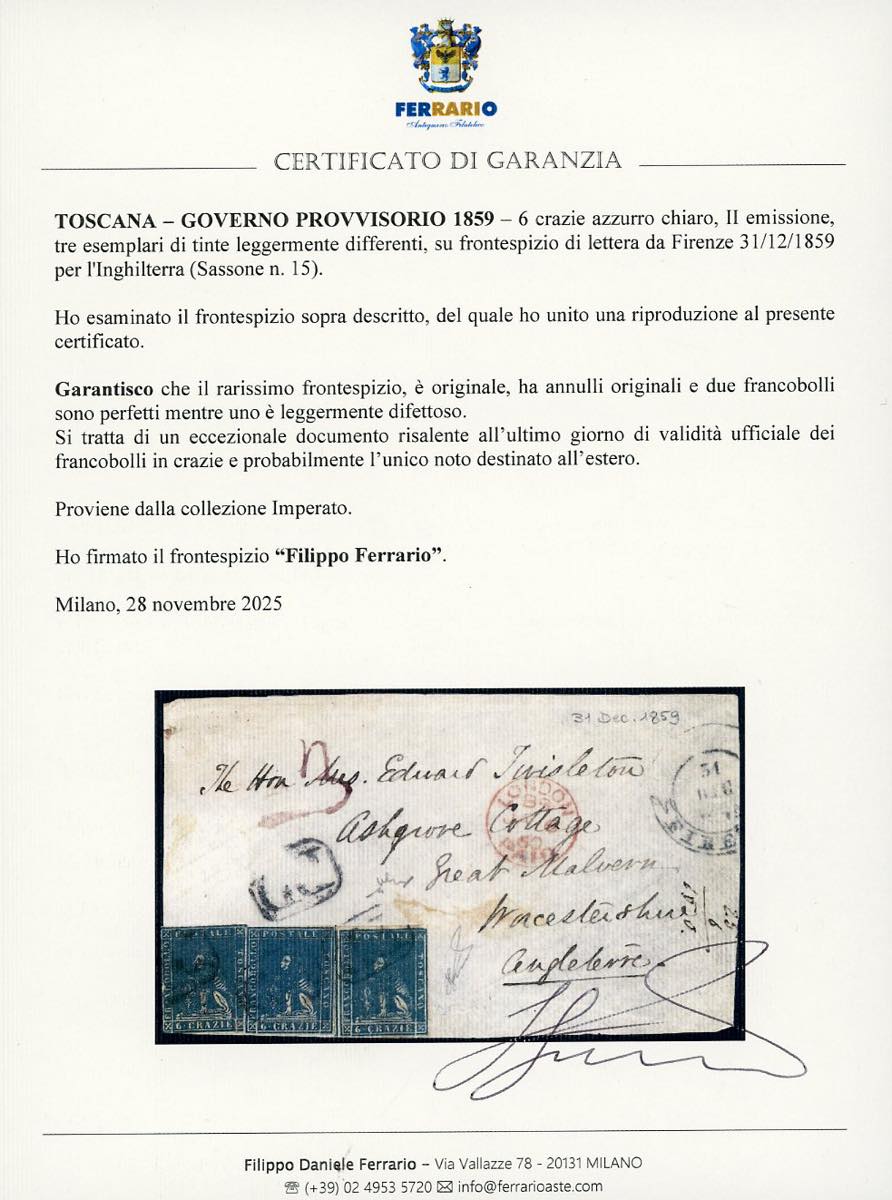 FERRARIO
Antiquario Filatelico
CERTIFICATO DI GARANZIA
TOSCANA – GOVERNO PROVVISORIO 1859 – 6 crazie azzurro chiaro, II emissione,
tre esemplari di tinte leggermente differenti, su frontespizio di lettera da Firenze 31/12/1859
per l'Inghilterra (Sassone n. 15).
Ho esaminato il frontespizio sopra descritto, del quale ho unito una riproduzione al presente
certificato.
Garantisco che il rarissimo frontespizio, è originale, ha annulli originali e due francobolli
sono perfetti mentre uno è leggermente difettoso.
Si tratta di un eccezionale documento risalente all’ultimo giorno di validità ufficiale dei
francobolli in crazie e probabilmente l’unico noto destinato all’estero.
Proviene dalla collezione Imperato.
Ho firmato il frontespizio “Filippo Ferrario”.
Milano, 28 novembre 2025
31 Dec. 1859
The Hon Mrs. Edward Twisleton
Ashgrove Cottage
Great Malvern
Worcestershire
Angleterre
LONDON
PAID
31
POSTALE POSTALE POSTALE
FRANCOBOLLO TOSCANO FRANCOBOLLO TOSCANO FRANCOBOLLO TOSCANO
6 CRAZIE 6 CRAZIE 6 CRAZIE
Filippo Daniele Ferrario – Via Vallazze 78 - 20131 MILANO
☎ (+39) 02 4953 5720 ✉ info@ferrarioaste.com